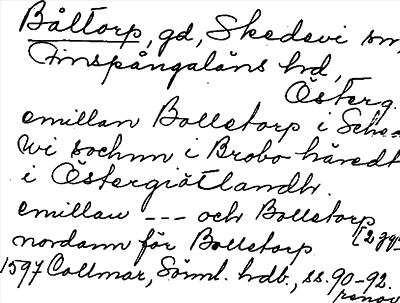 Båltorp, gd, Skedevi sn,
Finspångaläns hd,
Österg.
emillan Bolletorp i Sche=
wi sochnn i Brobo häredt
i Östergiötlandh.
emillan --- och Bolletorp
nordann för Bolletorp [2 ggr
1597 Collmar, Sörml. hdb., ss. 90-92.
renov.